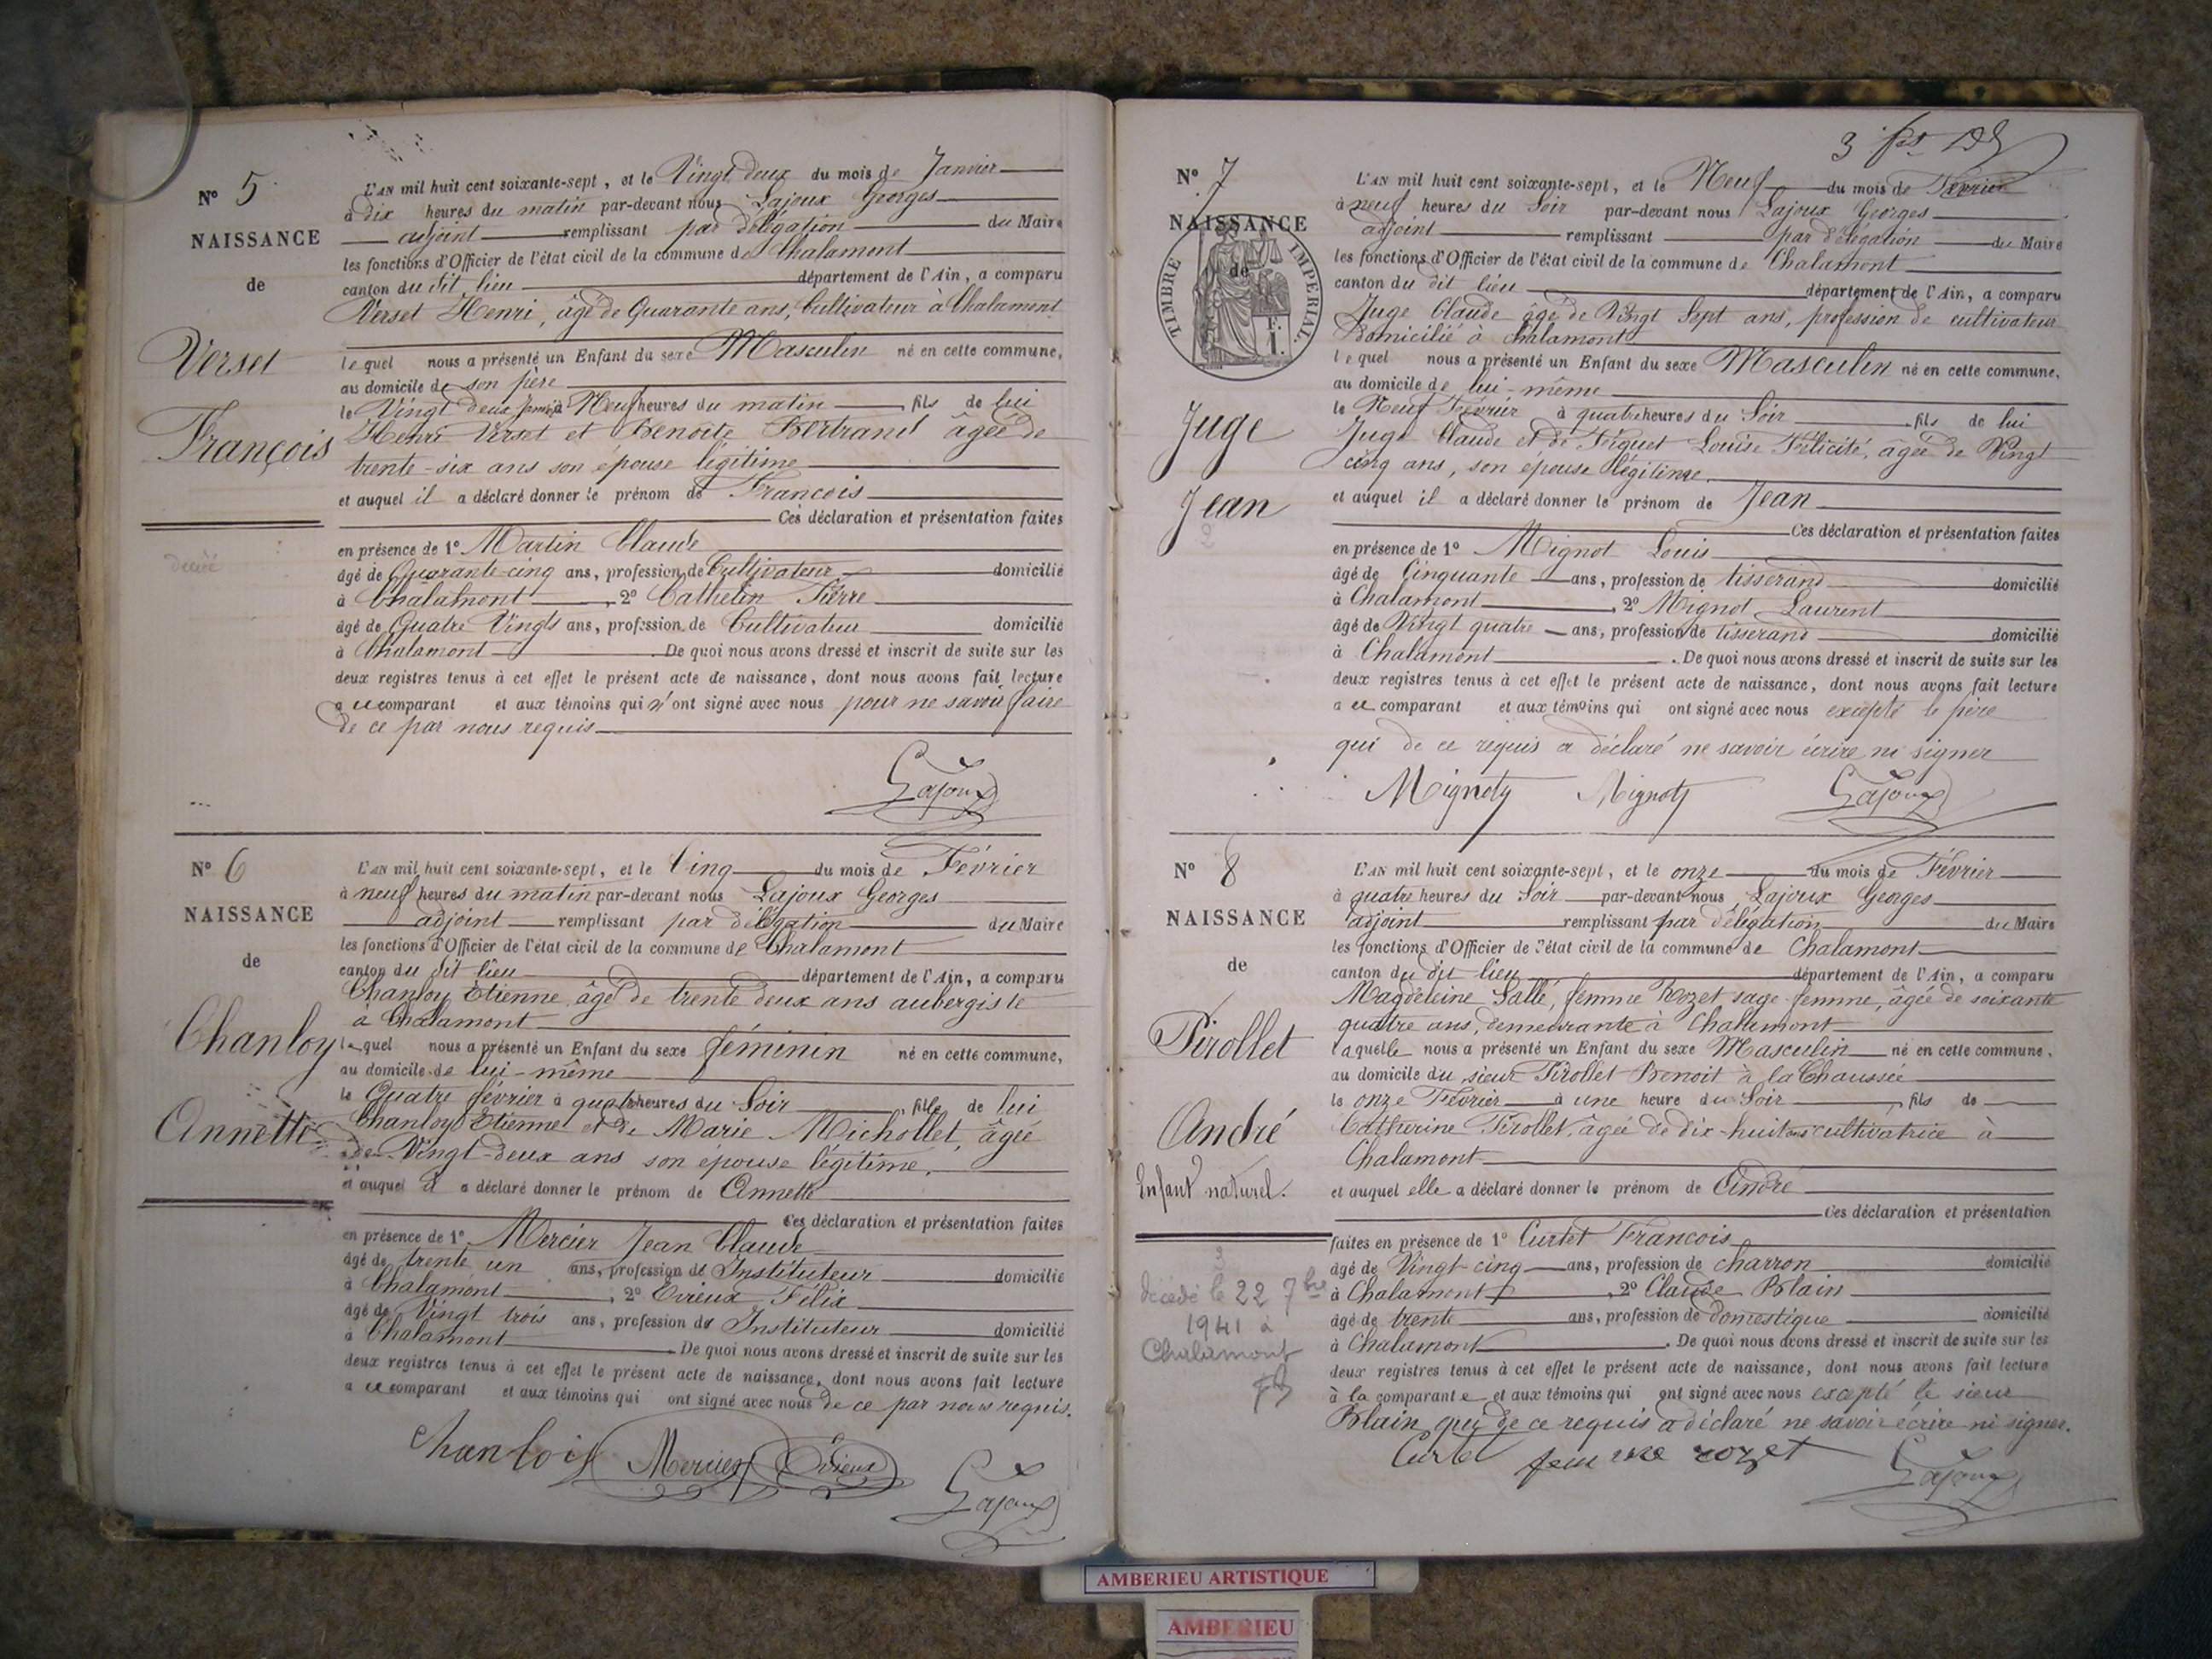 N° 5
NAISSANCE
de
Verset
François
L'AN mil huit cent soixante-sept, et le Vingt deux du mois de Janvier
à dix heures du matin par-devant nous Lajoux Georges
adjoint remplissant par délégation du Maire
les fonctions d'Officier de l'état civil de la commune de Chalamont
canton du dit lieu département de l'Ain, a comparu
Verset Henri, âgé de Quarante ans, Cultivateur à Chalamont
le quel nous a présenté un Enfant du sexe Masculin né en cette commune,
au domicile de son père
le Vingt deux à Neuf heures du matin, fils de lui
Henri Verset et Benoite Bertrand âgée de
trente-six ans son épouse légitime
et auquel il a déclaré donner le prénom de Francois
Ces déclaration et présentation faites
en présence de 1° Martin Claude
âgé de Quarante-cinq ans, profession de Cultivateur domicilié
à Chalamont, 2° Cathelin Pierre
âgé de Quatre Vingts ans, profession de Cultivateur domicilié
à Chalamont. De quoi nous avons dressé et inscrit de suite sur les
deux registres tenus à cet effet le présent acte de naissance, dont nous avons fait lecture
a ce comparant et aux témoins qui n'ont signé avec nous pour ne savoir faire
de ce par nous requis
Lajoux
N° 6
NAISSANCE
de
Chanloy
Annette
L'AN mil huit cent soixante-sept, et le Cinq du mois de Février
à neuf heures du matin par-devant nous Lajoux Georges
adjoint remplissant par délégation du Maire
les fonctions d'Officier de l'état civil de la commune de Chalamont
canton du dit lieu département de l'Ain, a comparu
Chanloy Etienne âgé de trente deux ans aubergiste
à Chalamont
le quel nous a présenté un Enfant du sexe féminin né en cette commune,
au domicile de lui-même
le Quatre février à quatre heures du Soir, fille de lui
Chanloy Etienne et de Marie Michollet, âgée
de Vingt-deux ans son épouse légitime,
et auquel il a déclaré donner le prénom de Annette
Ces déclaration et présentation faites
en présence de 1° Mercier Jean Claude
âgé de trente un ans, profession de Instituteur domicilié
à Chalamont, 2° Evieux Félix
âgé de Vingt trois ans, profession de Instituteur domicilié
à Chalamont. De quoi nous avons dressé et inscrit de suite sur les
deux registres tenus à cet effet le présent acte de naissance, dont nous avons fait lecture
a ce comparant et aux témoins qui ont signé avec nous de ce par nous requis.
Chanlois Mercier Evieux Lajoux
N° 7
NAISSANCE
de
TIMBRE IMPERIAL
Juge
Jean
2
L'AN mil huit cent soixante-sept, et le Neuf du mois de Février
à neuf heures du Soir par-devant nous Lajoux Georges
adjoint remplissant par délégation du Maire
les fonctions d'Officier de l'état civil de la commune de Chalamont
canton du dit lieu département de l'Ain, a comparu
Juge Claude âgé de Vingt Sept ans, profession de cultivateur
Domicilié à Chalamont
le quel nous a présenté un Enfant du sexe Masculin né en cette commune,
au domicile de lui-même
le Neuf Février à quatre heures du Soir, fils de lui
Juge Claude et de Piquet Louise Félicité, âgée de Vingt
cinq ans, son épouse légitime.
et auquel il a déclaré donner le prénom de Jean
Ces déclaration et présentation faites
en présence de 1° Mignot Louis
âgé de Cinquante ans, profession de tisserand domicilié
à Chalamont, 2° Mignot Laurent
âgé de Vingt quatre ans, profession de tisserand domicilié
à Chalamont. De quoi nous avons dressé et inscrit de suite sur les
deux registres tenus à cet effet le présent acte de naissance, dont nous avons fait lecture
a ce comparant et aux témoins qui ont signé avec nous excepté le père
qui de ce requis a déclaré ne savoir écrire ni signer
Mignoty Mignoty Lajoux
N° 8
NAISSANCE
de
Pirollet
André
Enfant naturel.
3
décédé le 22 7bre
1941 à
Chalamont
L'AN mil huit cent soixante-sept, et le onze du mois de Février
à quatre heures du Soir par-devant nous Lajoux Georges
adjoint remplissant par délégation du Maire
les fonctions d'Officier de l'état civil de la commune de Chalamont
canton du dit lieu département de l'Ain, a comparu
Magdeleine Sallé, femme Rozet sage-femme, âgée de soixante
quatre ans, demeurante à Chalamont
laquelle nous a présenté un Enfant du sexe Masculin né en cette commune,
au domicile du sieur Pirollet Benoit à la Chaussée
le onze Février à une heure du Soir, fils de
Catherine Pirollet, âgée de dix-huit ans cultivatrice à
Chalamont
et auquel elle a déclaré donner le prénom de André
Ces déclaration et présentation
faites en présence de 1° Curtet Francois
âgé de Vingt cinq ans, profession de charron domicilié
à Chalamont, 2° Claude Blain
âgé de trente ans, profession de domestique domicilié
à Chalamont. De quoi nous avons dressé et inscrit de suite sur les
deux registres tenus à cet effet le présent acte de naissance, dont nous avons fait lecture
à la comparante et aux témoins qui ont signé avec nous excepté le sieur
Blain qui de ce requis a déclaré ne savoir écrire ni signer.
Curtet femme rozet Lajoux
AMBERIEU ARTISTIQUE
AMBERIEU